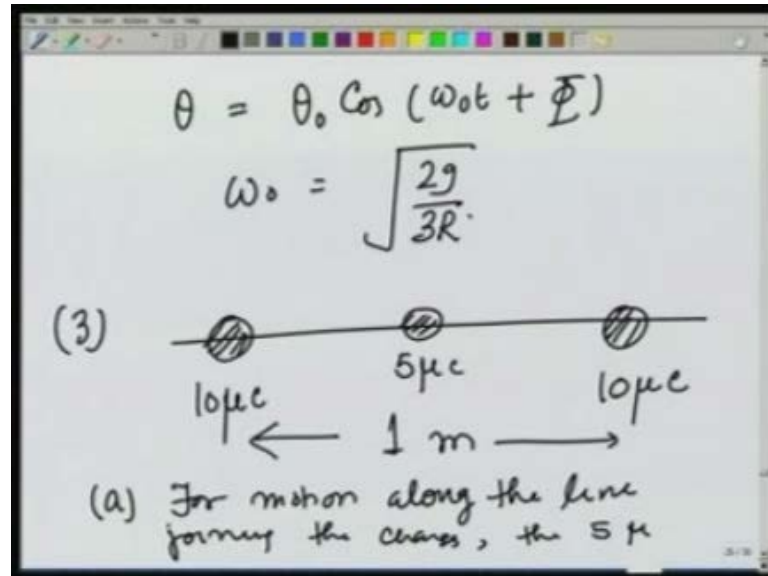 θ = θ₀ Cos (ω₀t + Φ)
ω₀ = √(2g/3R)
(3)
10μc 5μc 10μc
← 1 m →
(a) For motion along the line
joining the charges, the 5 μ